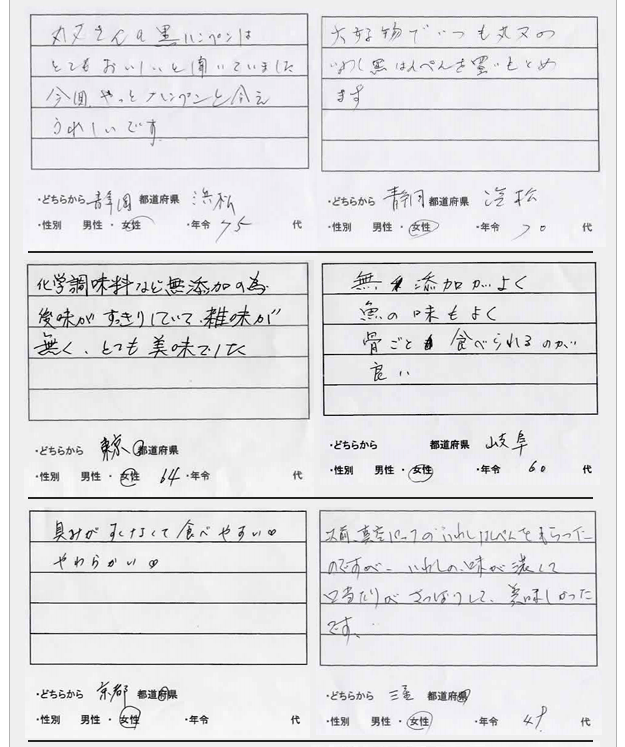 丸又さんの黒ハンペンは
とてもおいしいと聞いていました
今回やっとハンペンと会え
うれしいです
・どちらから 静岡 都道府県 浜松
・性別 男性・女性 ・年令 75 代
大好物でいつも丸又の
いわし黒はんぺんを買いもとめ
ます
・どちらから 静岡 都道府県 浜松
・性別 男性・女性 ・年令 70 代
化学調味料など無添加の為
後味がすっきりしていて、雑味が
無く、とても美味でした
・どちらから 東京 都道府県
・性別 男性・女性 64 ・年令 代
無添加がよく
魚の味もよく
骨ごと食べられるのが
良い
・どちらから 都道府県 岐阜
・性別 男性・女性 ・年令 60 代
臭みがすくなくて食べやすい♡
やわらかい♡
・どちらから 京都 都道府県
・性別 男性・女性 ・年令 代
以前、真空パックのいわしはんぺんをもらった
のですが、いわしの味が濃くて
口当たりがさっぱりして、美味しかった
です。
・どちらから 三重 都道府県
・性別 男性・女性 ・年令 49 代